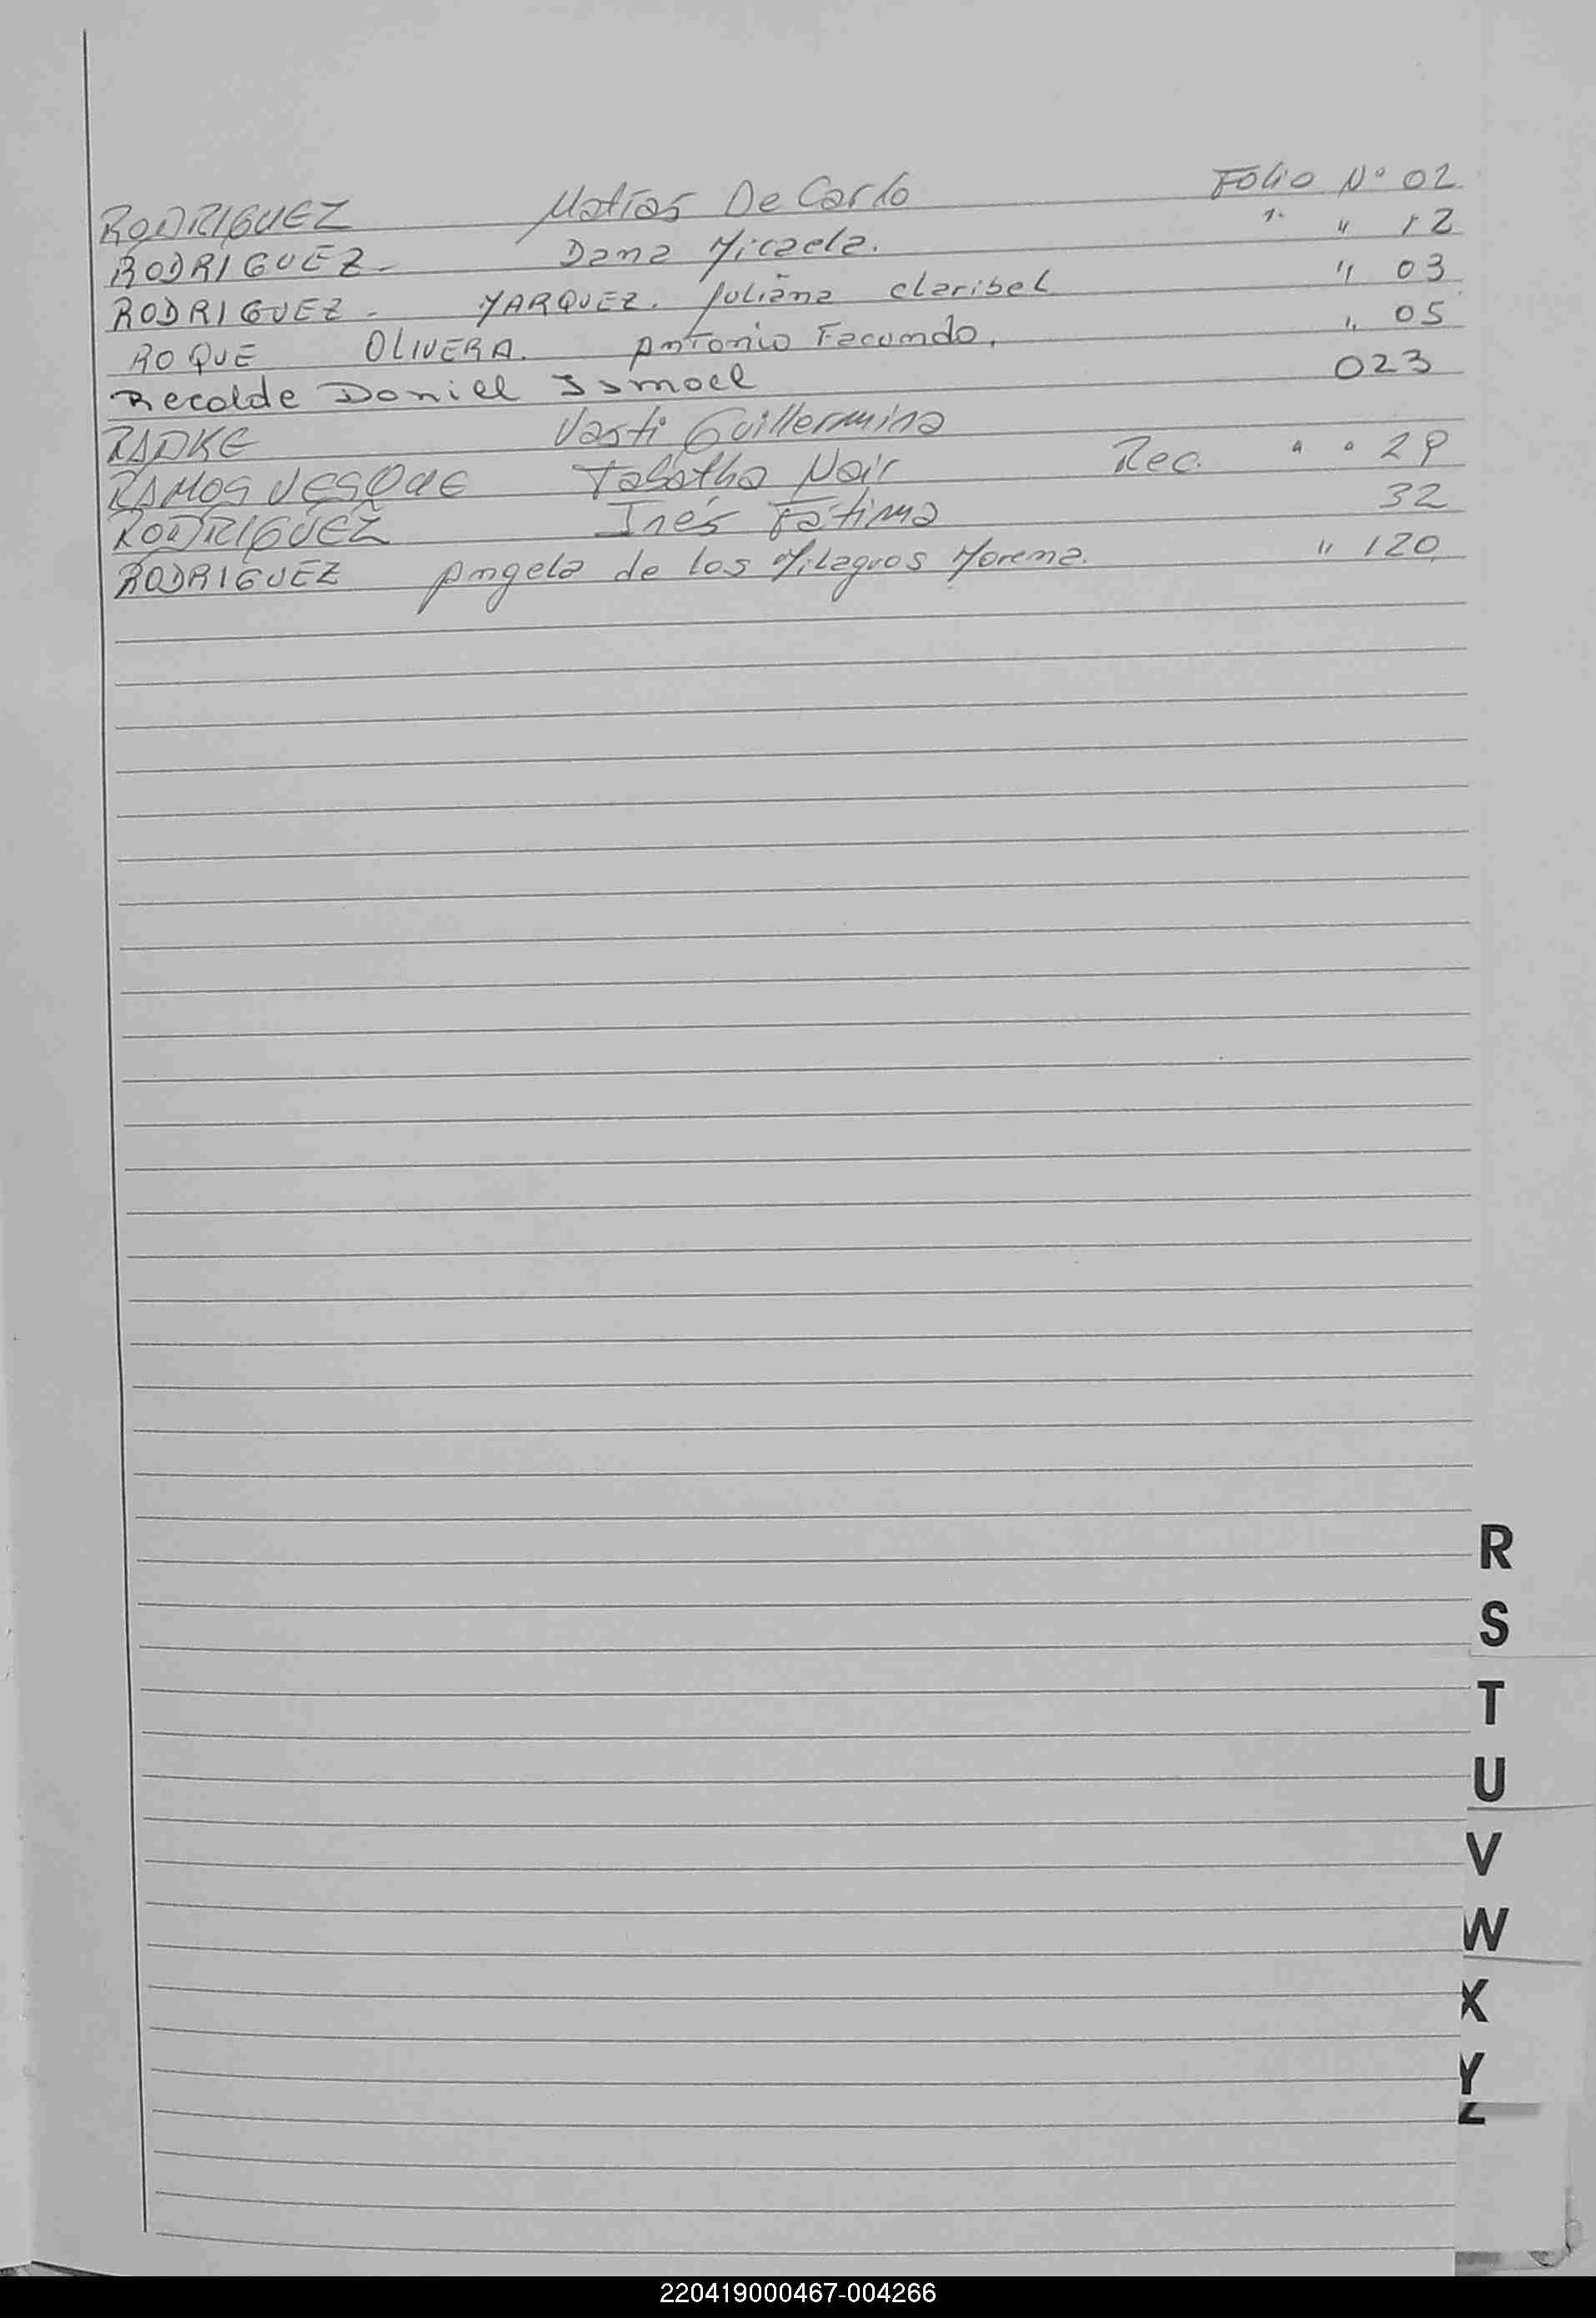 RODRIGUEZ Matías De Carlo Folio Nº 02
RODRIGUEZ - Dana Micaela. " " 12
RODRIGUEZ - MARQUEZ. Juliana Claribel " 03
ROQUE OLIVERA. Antonio Facundo. " 05
Recalde Daniel Ismael 023
RADKE Vasti Guillermina
RAMOS VESQUE Tabatha Nair Rec. " " 29
RODRIGUEZ Inés Fátima 32
RODRIGUEZ Angela de los Milagros Morena. " 120
R
S
T
U
V
W
X
Y
Z
220419000467-004266